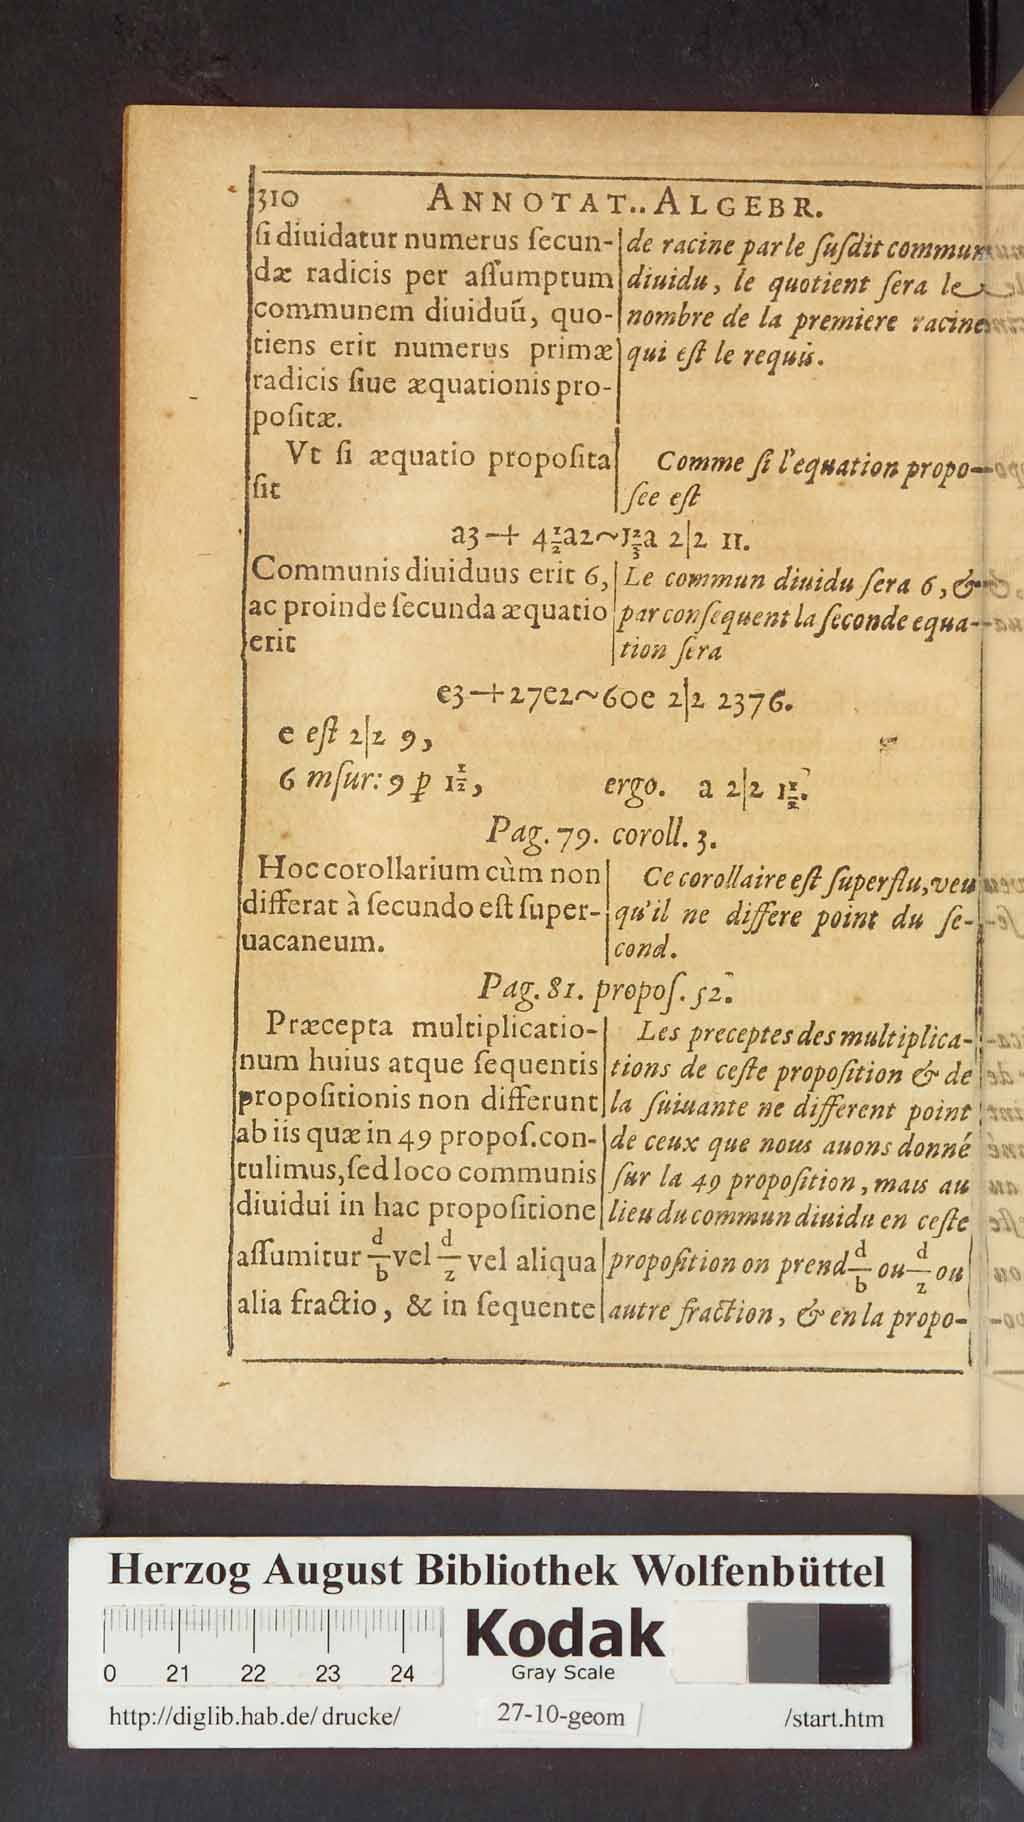 310 ANNOTAT..ALGEBR.
ſi diuidatur numerus ſecun-
dæ radicis per aſſumptum
communem diuiduũ, quo-
tiens erit numerus primæ
radicis ſiue æquationis pro-
poſitæ.
Vt ſi æquatio propoſita
ſit
de racine par le ſuſdit commun
diuidu, le quotient ſera le
nombre de la premiere racine
qui eſt le requis.
Comme ſi l'equation propo-
ſee eſt
a3-+ 4½a2~1⅔a 2|2 11.
Communis diuiduus erit 6,
ac proinde ſecunda æquatio
erit
Le commun diuidu ſera 6, &
par conſequent la ſeconde equa-
tion ſera
e3-+27e2~60e 2|2 2376.
e eſt 2|2 9,
6 mſur: 9 ꝑ 1½, ergo. a 2|2 1½.
Pag. 79. coroll. 3.
Hoc corollarium cùm non
differat à ſecundo eſt ſuper-
uacaneum.
Ce corollaire eſt ſuperflu, veu
qu'il ne differe point du ſe-
cond.
Pag. 81. propoſ. 52.
Præcepta multiplicatio-
num huius atque ſequentis
propoſitionis non differunt
ab iis quæ in 49 propoſ. con-
tulimus, ſed loco communis
diuidui in hac propoſitione
aſſumitur d/b vel d/z vel aliqua
alia fractio, & in ſequente
Les preceptes des multiplica-
tions de ceſte propoſition & de
la ſuiuante ne different point
de ceux que nous auons donné
ſur la 49 propoſition, mais au
lieu du commun diuidu en ceſte
propoſition on prend d/b ou d/z ou
autre fraction, & en la propo-
Herzog August Bibliothek Wolfenbüttel
0 21 22 23 24
Kodak
Gray Scale
http://diglib.hab.de/drucke/ 27-10-geom /start.htm